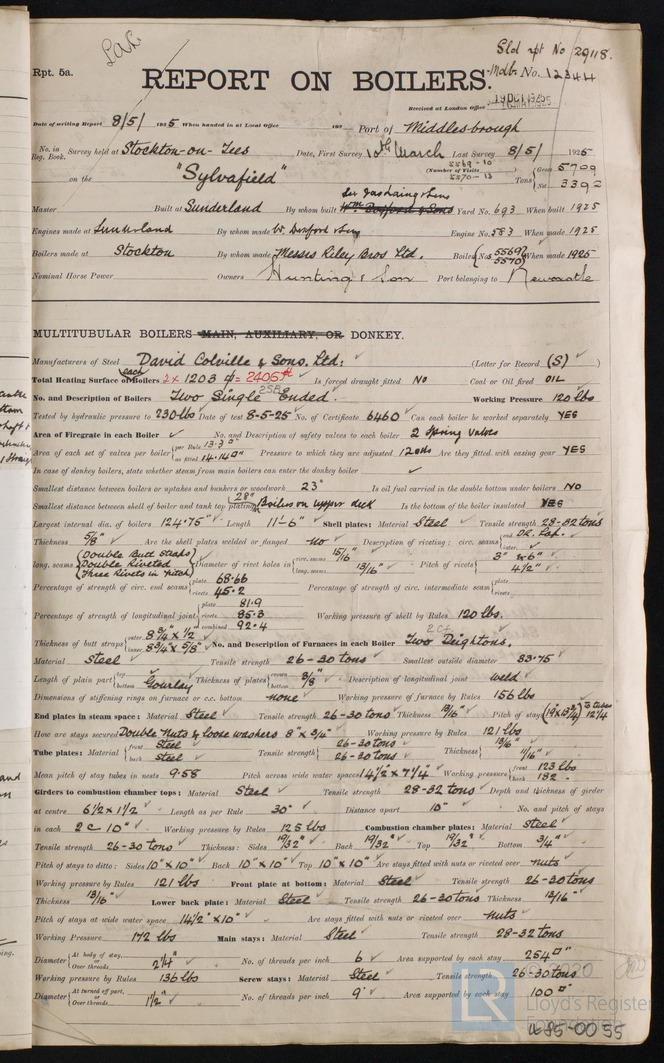 Lal
Sld rpt No 29118.
Rpt. 5a.
Mdb. No. 12344
REPORT ON BOILERS.
Received at London Office
Date of writing Report 8/5/1925 When handed in at Local Office 192 Port of Middlesbrough
No. in Reg. Book. Survey held at Stockton-on-Tees Date, First Survey 10th March Last Survey 8/5/1925
on the "Sylvafield" (Number of Visits 5569-10 5570-13) Tons {Gross 5709 Net 3392
Master Built at Sunderland By whom built Yard No. 693 When built 1925
Engines made at Sunderland By whom made W. Doxford & Sons Engine No. 583 When made 1925
Boilers made at Stockton By whom made Messrs Riley Bros Ltd. Boiler Nos (5569 5570) When made 1925
Nominal Horse Power Owners Hunting & Son Port belonging to Newcastle
MULTITUBULAR BOILERS MAIN, AUXILIARY, OR DONKEY.
Manufacturers of Steel David Colville & Sons. Ltd: (Letter for Record (S) )
Total Heating Surface of each Boilers 2x 1203 = 2406 Is forced draught fitted NO Coal or Oil fired OIL
No. and Description of Boilers Two Single Ended. 2SB Working Pressure 120 lbs
Tested by hydraulic pressure to 230 lbs Date of test 8-5-25 No. of Certificate 6460 Can each boiler be worked separately YES
Area of Firegrate in each Boiler No. and Description of safety valves to each boiler 2 Spring Valves
Area of each set of valves per boiler {per Rule 13.3 as fitted 14.14 Pressure to which they are adjusted Are they fitted with easing gear YES
In case of donkey boilers, state whether steam from main boilers can enter the donkey boiler
Smallest distance between boilers or uptakes and bunkers or woodwork 23" Is oil fuel carried in the double bottom under boilers NO
Smallest distance between shell of boiler and tank top plating 28" Boilers on upper deck Is the bottom of the boiler insulated YES
Largest internal dia. of boilers 124.75" Length 11-6" Shell plates: Material Steel Tensile strength 28-32 tons
Thickness 5/8" Are the shell plates welded or flanged no Description of riveting: circ. seams {end DR. Lap. inter.
long. seams (Double Butt Straps Double Riveted Three Rivets in Pitch) Diameter of rivet holes in {circ. seams 15/16" long. seams 13/16" Pitch of rivets {3" & 6" 4 1/2"
Percentage of strength of circ. end seams {plate 68.66 rivets 45.2 Percentage of strength of circ. intermediate seam {plate rivets
Percentage of strength of longitudinal joint {plate 81.9 rivets 85.3 combined 92.4 Working pressure of shell by Rules 120 lbs.
Thickness of butt straps {outer 8 3/4" x 1/2" inner 8 3/4" x 5/8" No. and Description of Furnaces in each Boiler Two Deightons.
Material Steel Tensile strength 26-30 tons Smallest outside diameter 33.75
Length of plain part {top bottom Gourlay Thickness of plates {crown bottom 3/8" Description of longitudinal joint weld
Dimensions of stiffening rings on furnace or c.c. bottom none Working pressure of furnace by Rules 156 lbs
End plates in steam space: Material Steel Tensile strength 26-30 tons Thickness 13/16" Pitch of stays
How are stays secured Double Nuts & loose washers 8" x 3/4" Working pressure by Rules 121 lbs
Tube plates: Material {front Steel back Steel Tensile strength {26-30 tons 26-30 tons Thickness {13/16" 11/16"
Mean pitch of stay tubes in nests 9.58 Pitch across wide water spaces 14 1/2" x 7 1/4" Working pressure {front 123 lbs back 182
Girders to combustion chamber tops: Material Steel Tensile strength 28-32 tons Depth and thickness of girder
at centre 6 1/2 x 1 1/2 Length as per Rule 30" Distance apart 10" No. and pitch of stays
in each 2 c 10" Working pressure by Rules 125 lbs Combustion chamber plates: Material Steel
Tensile strength 26-30 tons Thickness: Sides 19/32" Back 19/32" Top 19/32" Bottom 3/4"
Pitch of stays to ditto: Sides 10" x 10" Back 10" x 10" Top 10" x 10" Are stays fitted with nuts or riveted over nuts
Working pressure by Rules 121 lbs Front plate at bottom: Material Steel Tensile strength 26-30 tons
Thickness 13/16" Lower back plate: Material Steel Tensile strength 26-30 tons Thickness 13/16"
Pitch of stays at wide water space 14 1/2" x 10" Are stays fitted with nuts or riveted over nuts
Working Pressure 172 lbs Main stays: Material Steel Tensile strength 28-32 tons
Diameter {At body of stay, or Over threads 2 1/4" No. of threads per inch 6 Area supported by each stay 254"
Working pressure by Rules 136 lbs Screw stays: Material Steel Tensile strength 26-30 tons
Diameter {At turned off part, or Over threads 1 1/2" No. of threads per inch 9 Area supported by each stay 100"
Lloyd's Register
Foundation
W85-0055